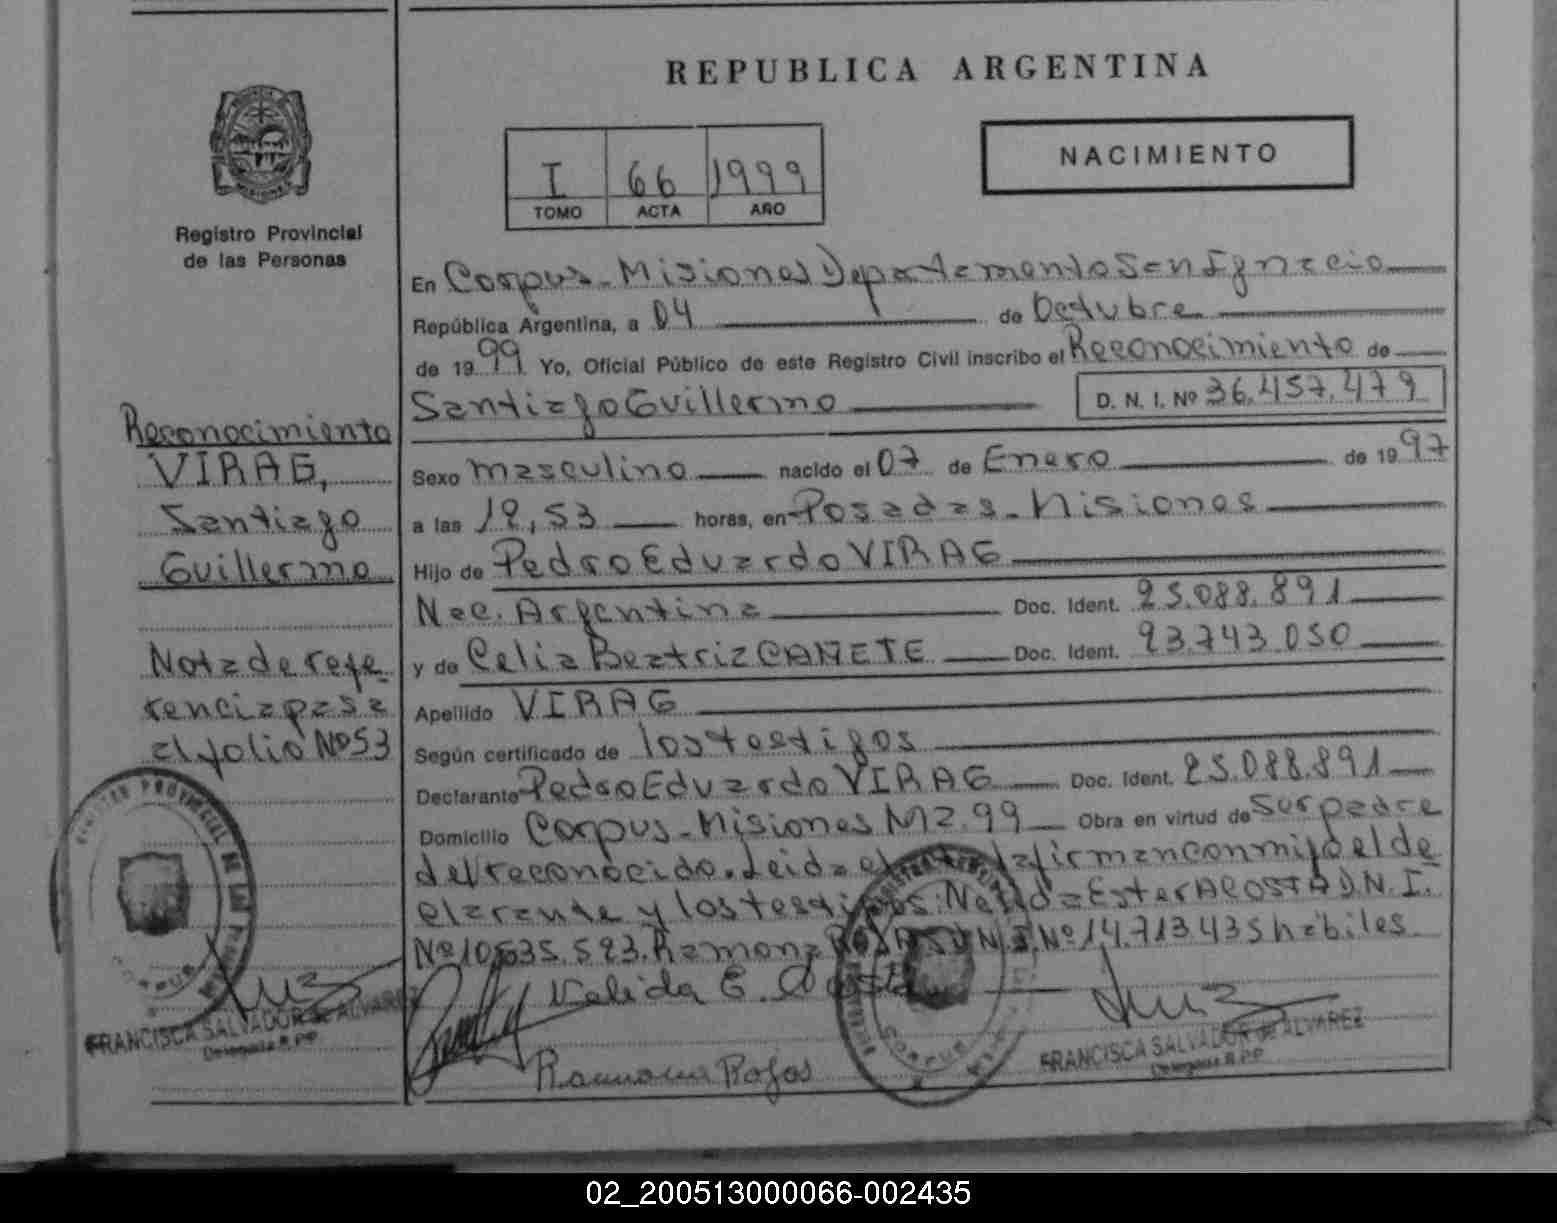 REPUBLICA ARGENTINA
NACIMIENTO
I 66 1999
TOMO ACTA AÑO
Registro Provincial
de las Personas
En Corpus - Misiones Departamento San Ignacio
República Argentina, a 04 de Octubre
de 1999 Yo, Oficial Público de este Registro Civil inscribo el Reconocimiento de
Santiago Guillermo D. N. I. Nº 36.457.479
Sexo masculino nacido el 07 de Enero de 1997
a las 12,53 horas, en Posadas - Misiones
Hijo de Pedro Eduardo VIRAG
Nac. Argentina Doc. Ident. 25.088.891
y de Celia Beatriz CAÑETE Doc. Ident. 23.743.050
Apellido VIRAG
Según certificado de los testigos
Declarante Pedro Eduardo VIRAG Doc. Ident. 25.088.891
Domicilio Corpus - Misiones Mz. 99 Obra en virtud de Ser padre
del reconocido. Leida el firman conmigo el de
clarante y los testigos: Nelida Ester ACOSTA D.N.I.
Nº 10.535.523. Ramona ROJAS D.N.I. Nº 14.713.435 hábiles.
Nelida E. Acosta
Ramona Rojas
FRANCISCA SALVADOR de ALVAREZ
Delegada R.P.P.
Reconocimiento
VIRAG,
Santiago
Guillermo
Nota de refe
rencia pasa
al folio Nº 53
REGISTRO PROVINCIAL DE LAS PERSONAS
CORPUS
FRANCISCA SALVADOR de ALVAREZ
Delegada R.P.P.
CORPUS
02_200513000066-002435